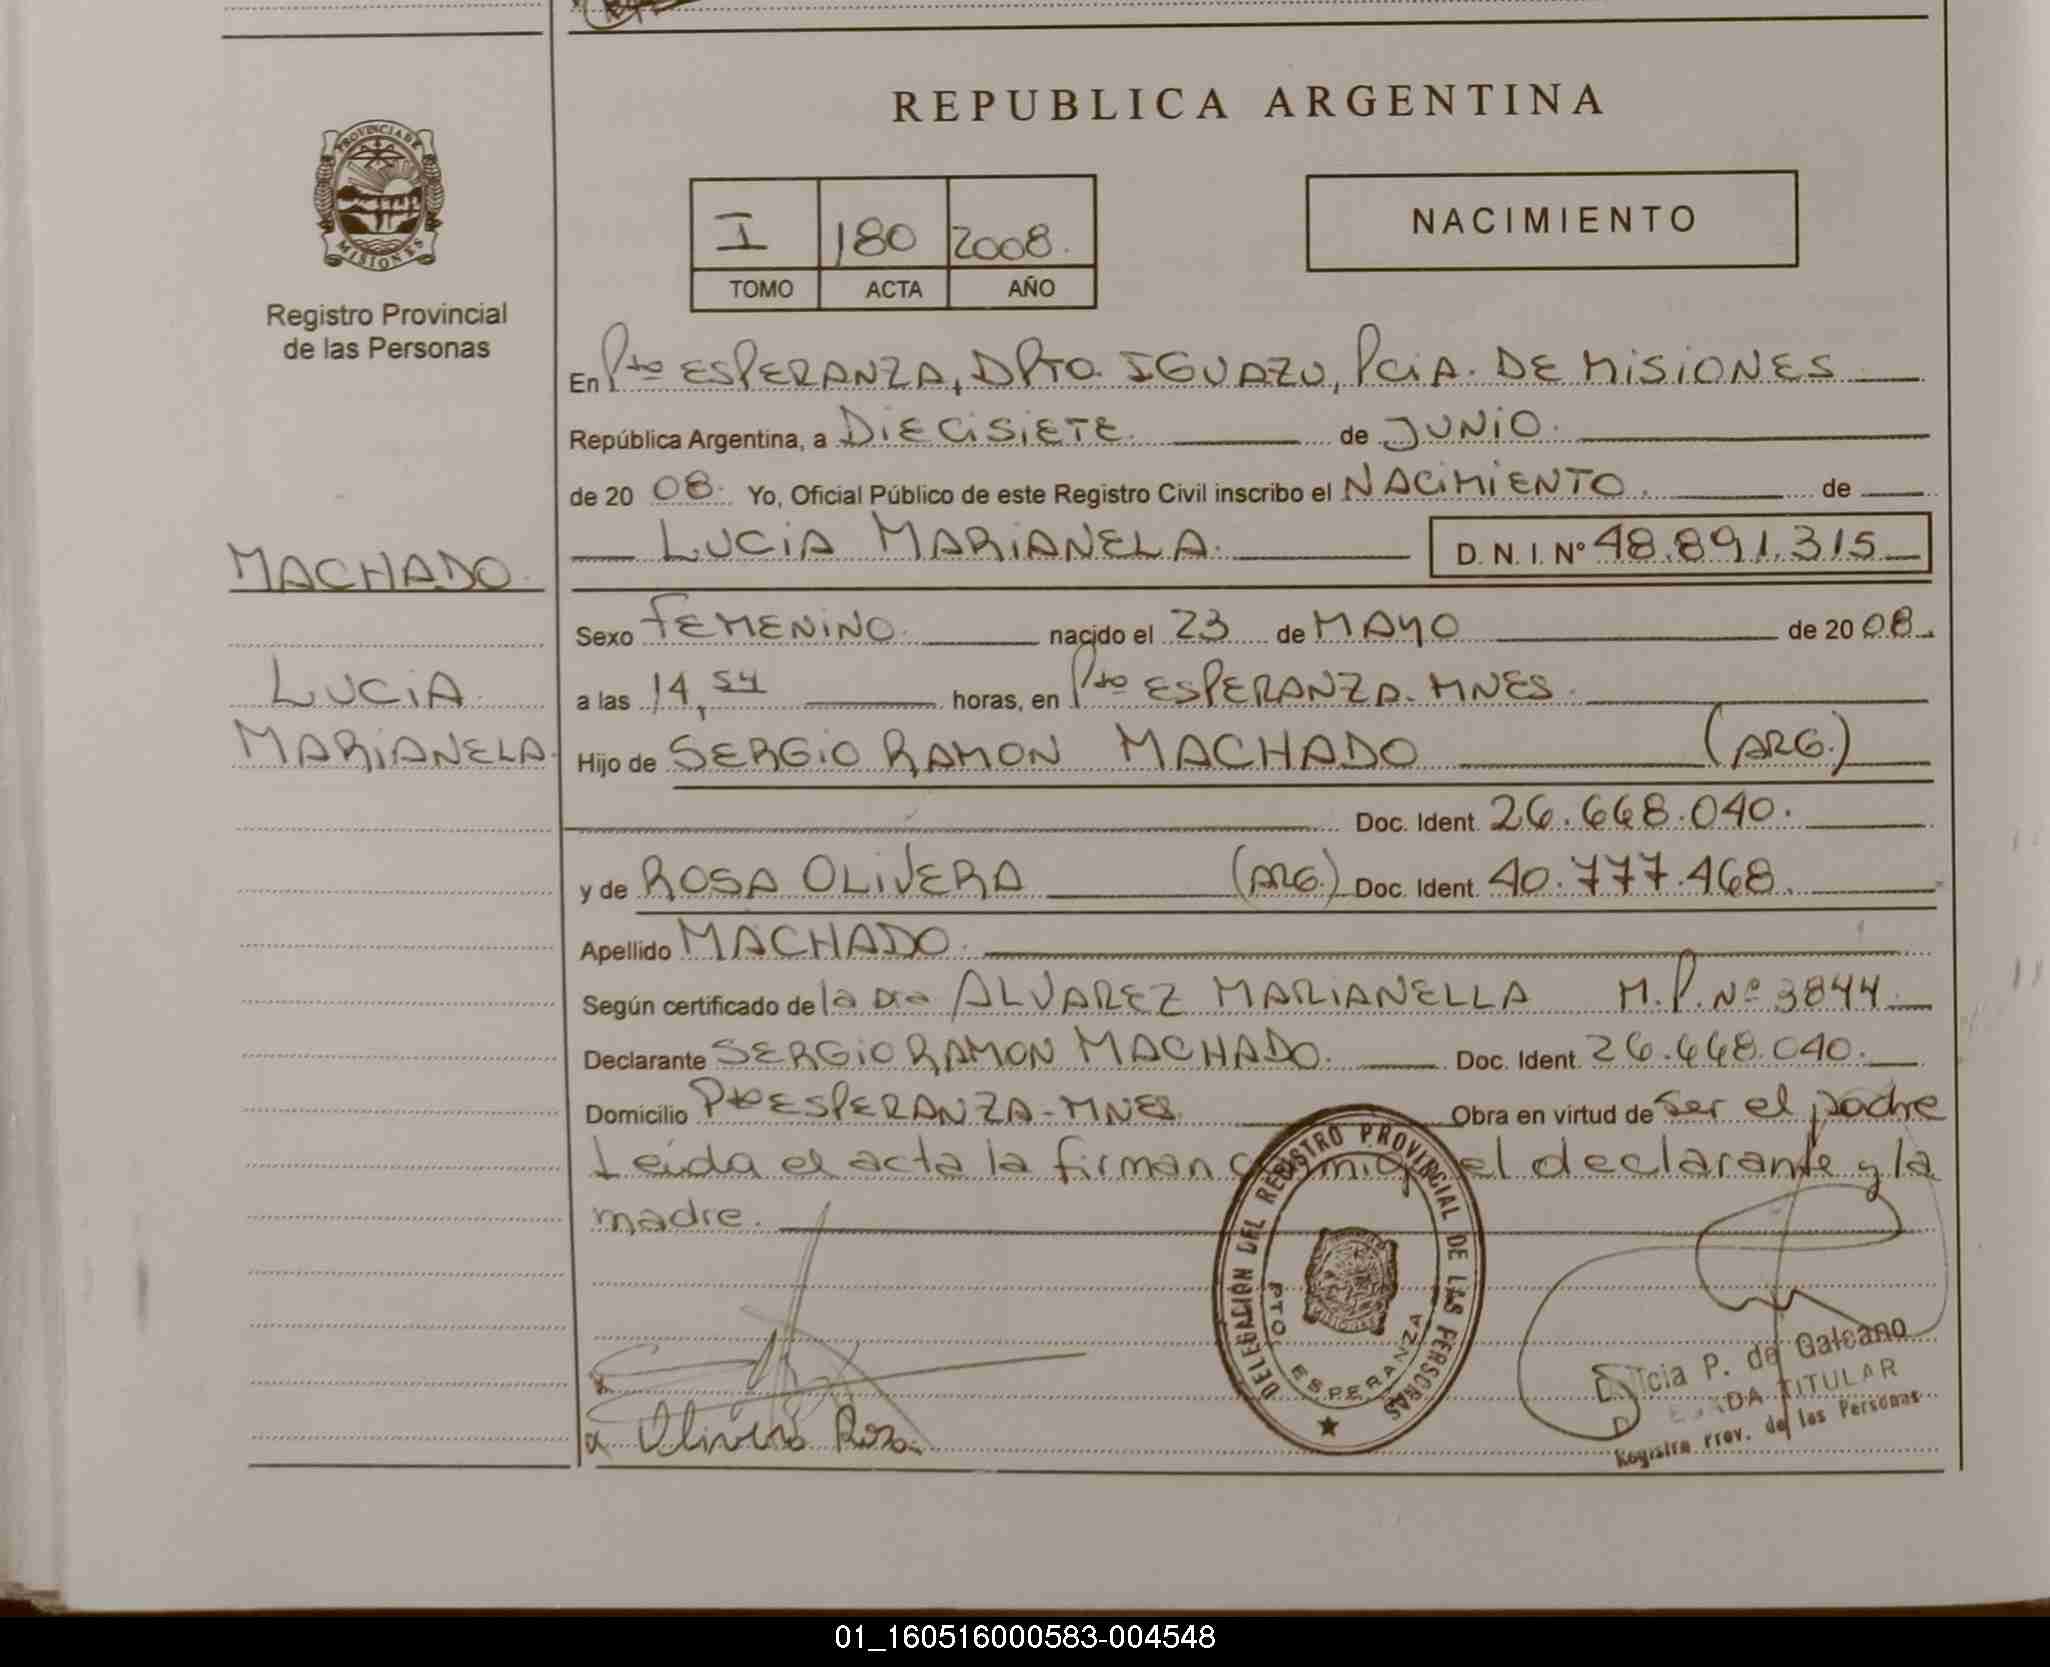 REPUBLICA ARGENTINA
PROVINCIA DE
MISIONES
Registro Provincial
de las Personas
I 180 2008.
TOMO ACTA AÑO
NACIMIENTO
En Pto ESPERANZA, DPTO. IGUAZU, PCiA. DE MISIONES
República Argentina, a DIECISIETE. de JUNIO.
de 20 08. Yo, Oficial Público de este Registro Civil inscribo el NACIMIENTO. de
LUCIA MARIANELA. D. N. I. Nº 48.891.315
MACHADO.
LUCIA
MARIANELA.
Sexo FEMENINO. nacido el 23 de MAYO de 20 08.
a las 14,54 horas, en Pto ESPERANZA. MNES.
Hijo de SERGIO RAMON MACHADO (ARG.)
Doc. Ident. 26.668.040.
y de ROSA OLIVERA (ARG.) Doc. Ident. 40.777.468.
Apellido MACHADO.
Según certificado de la Dra ALVAREZ MARIANELLA M.P. Nº 3844.
Declarante SERGIO RAMON MACHADO. Doc. Ident. 26.668.040.
Domicilio Pto ESPERANZA - MNES. Obra en virtud de ser el padre
Leida el acta la firman conmigo el declarante y la
madre.
DELEGACIÓN DEL REGISTRO PROVINCIAL DE LAS PERSONAS
PTO. ESPERANZA
P. de Galeano
TITULAR
Registro Prov. de las Personas
x
x Olivera Rosa.
01_160516000583-004548